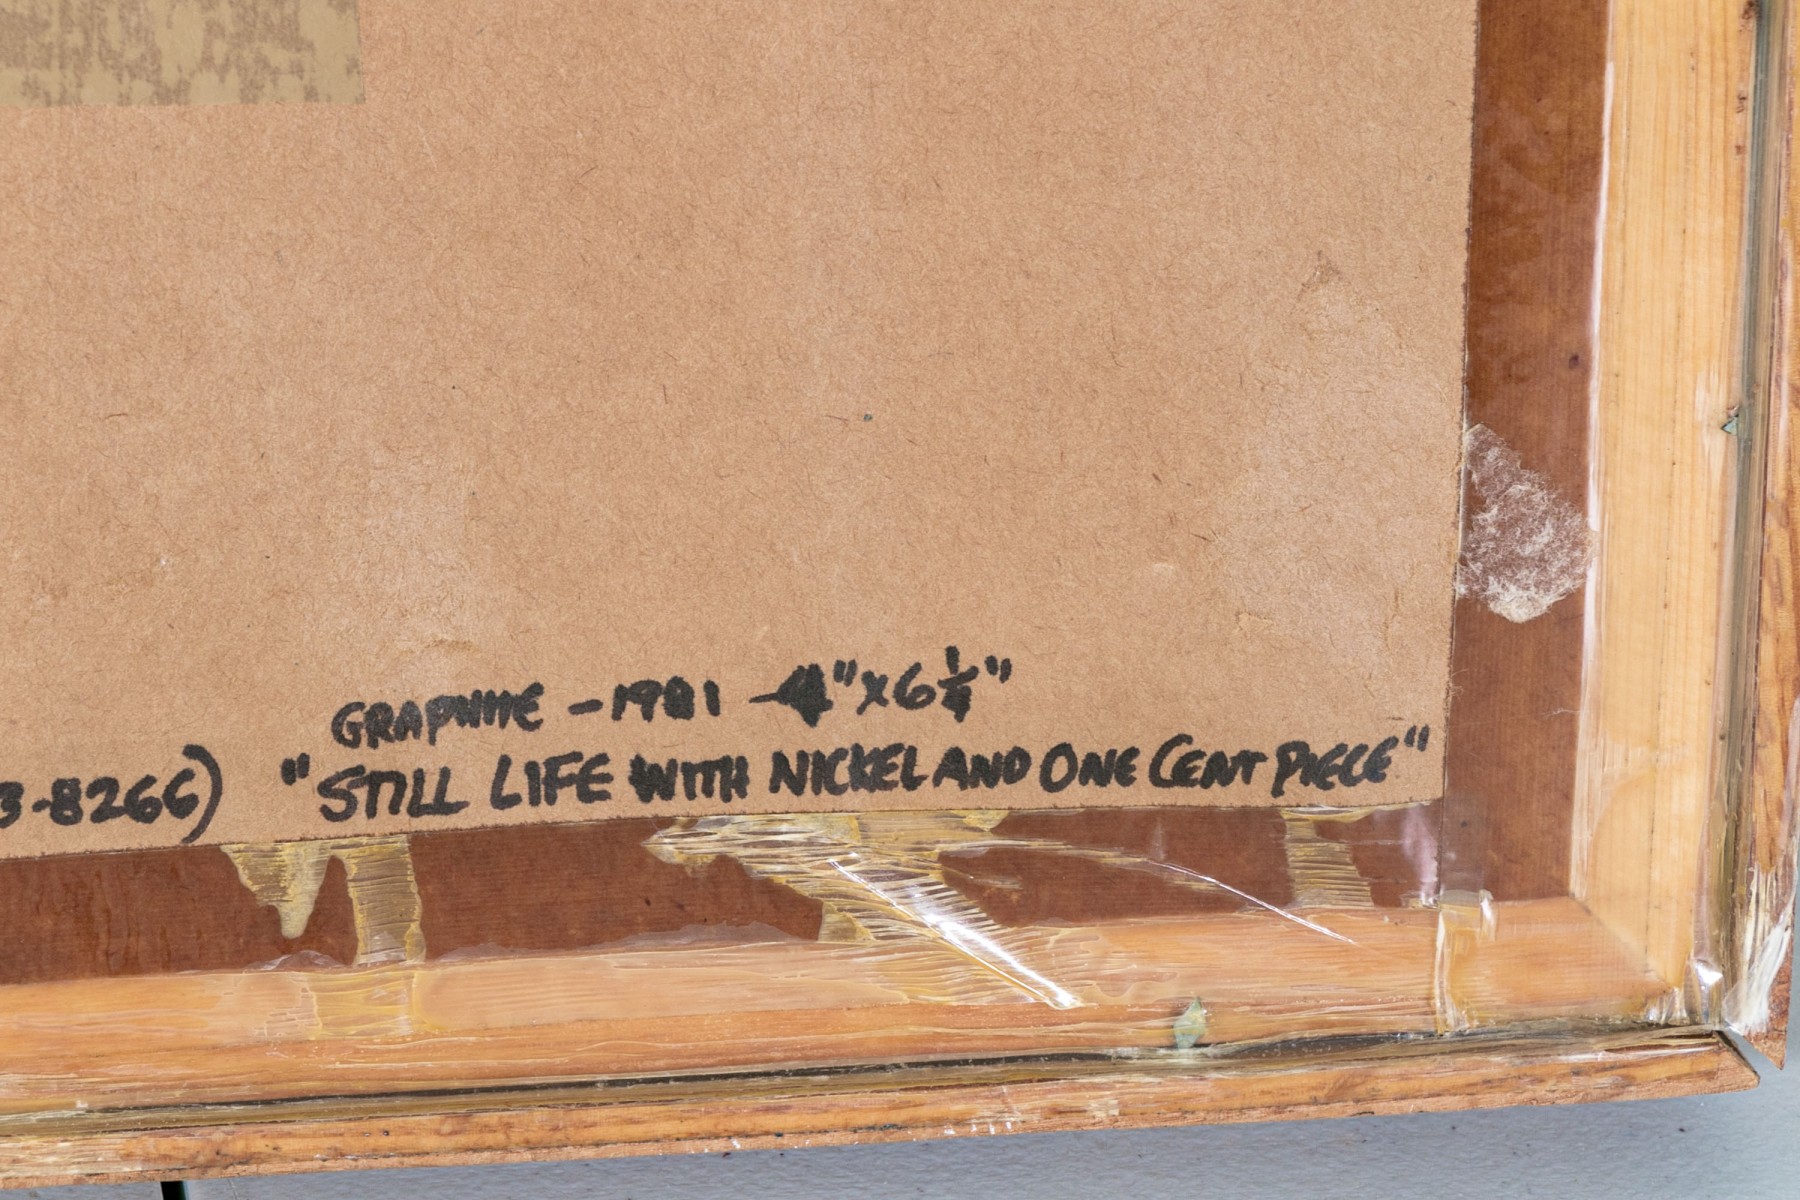 GRAPHITE - 1981 - 4" x 6 1/4"
3-8266) "STILL LIFE WITH NICKEL AND ONE CENT PIECE"